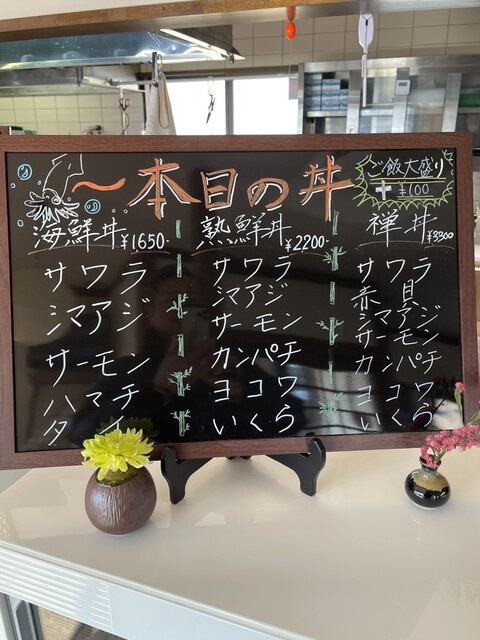 〜本日の丼
ご飯大盛り
+¥100
海鮮丼 ¥1650-
サワラ
シマアジ
サーモン
ハマチ
タイ
熟鮮丼 ¥2200-
サワラ
シマアジ
サーモン
カンパチ
ヨコワ
いくら
禅丼 ¥3300
サワラ
赤貝
シマアジ
サーモン
カンパチ
ヨコワ
いくら